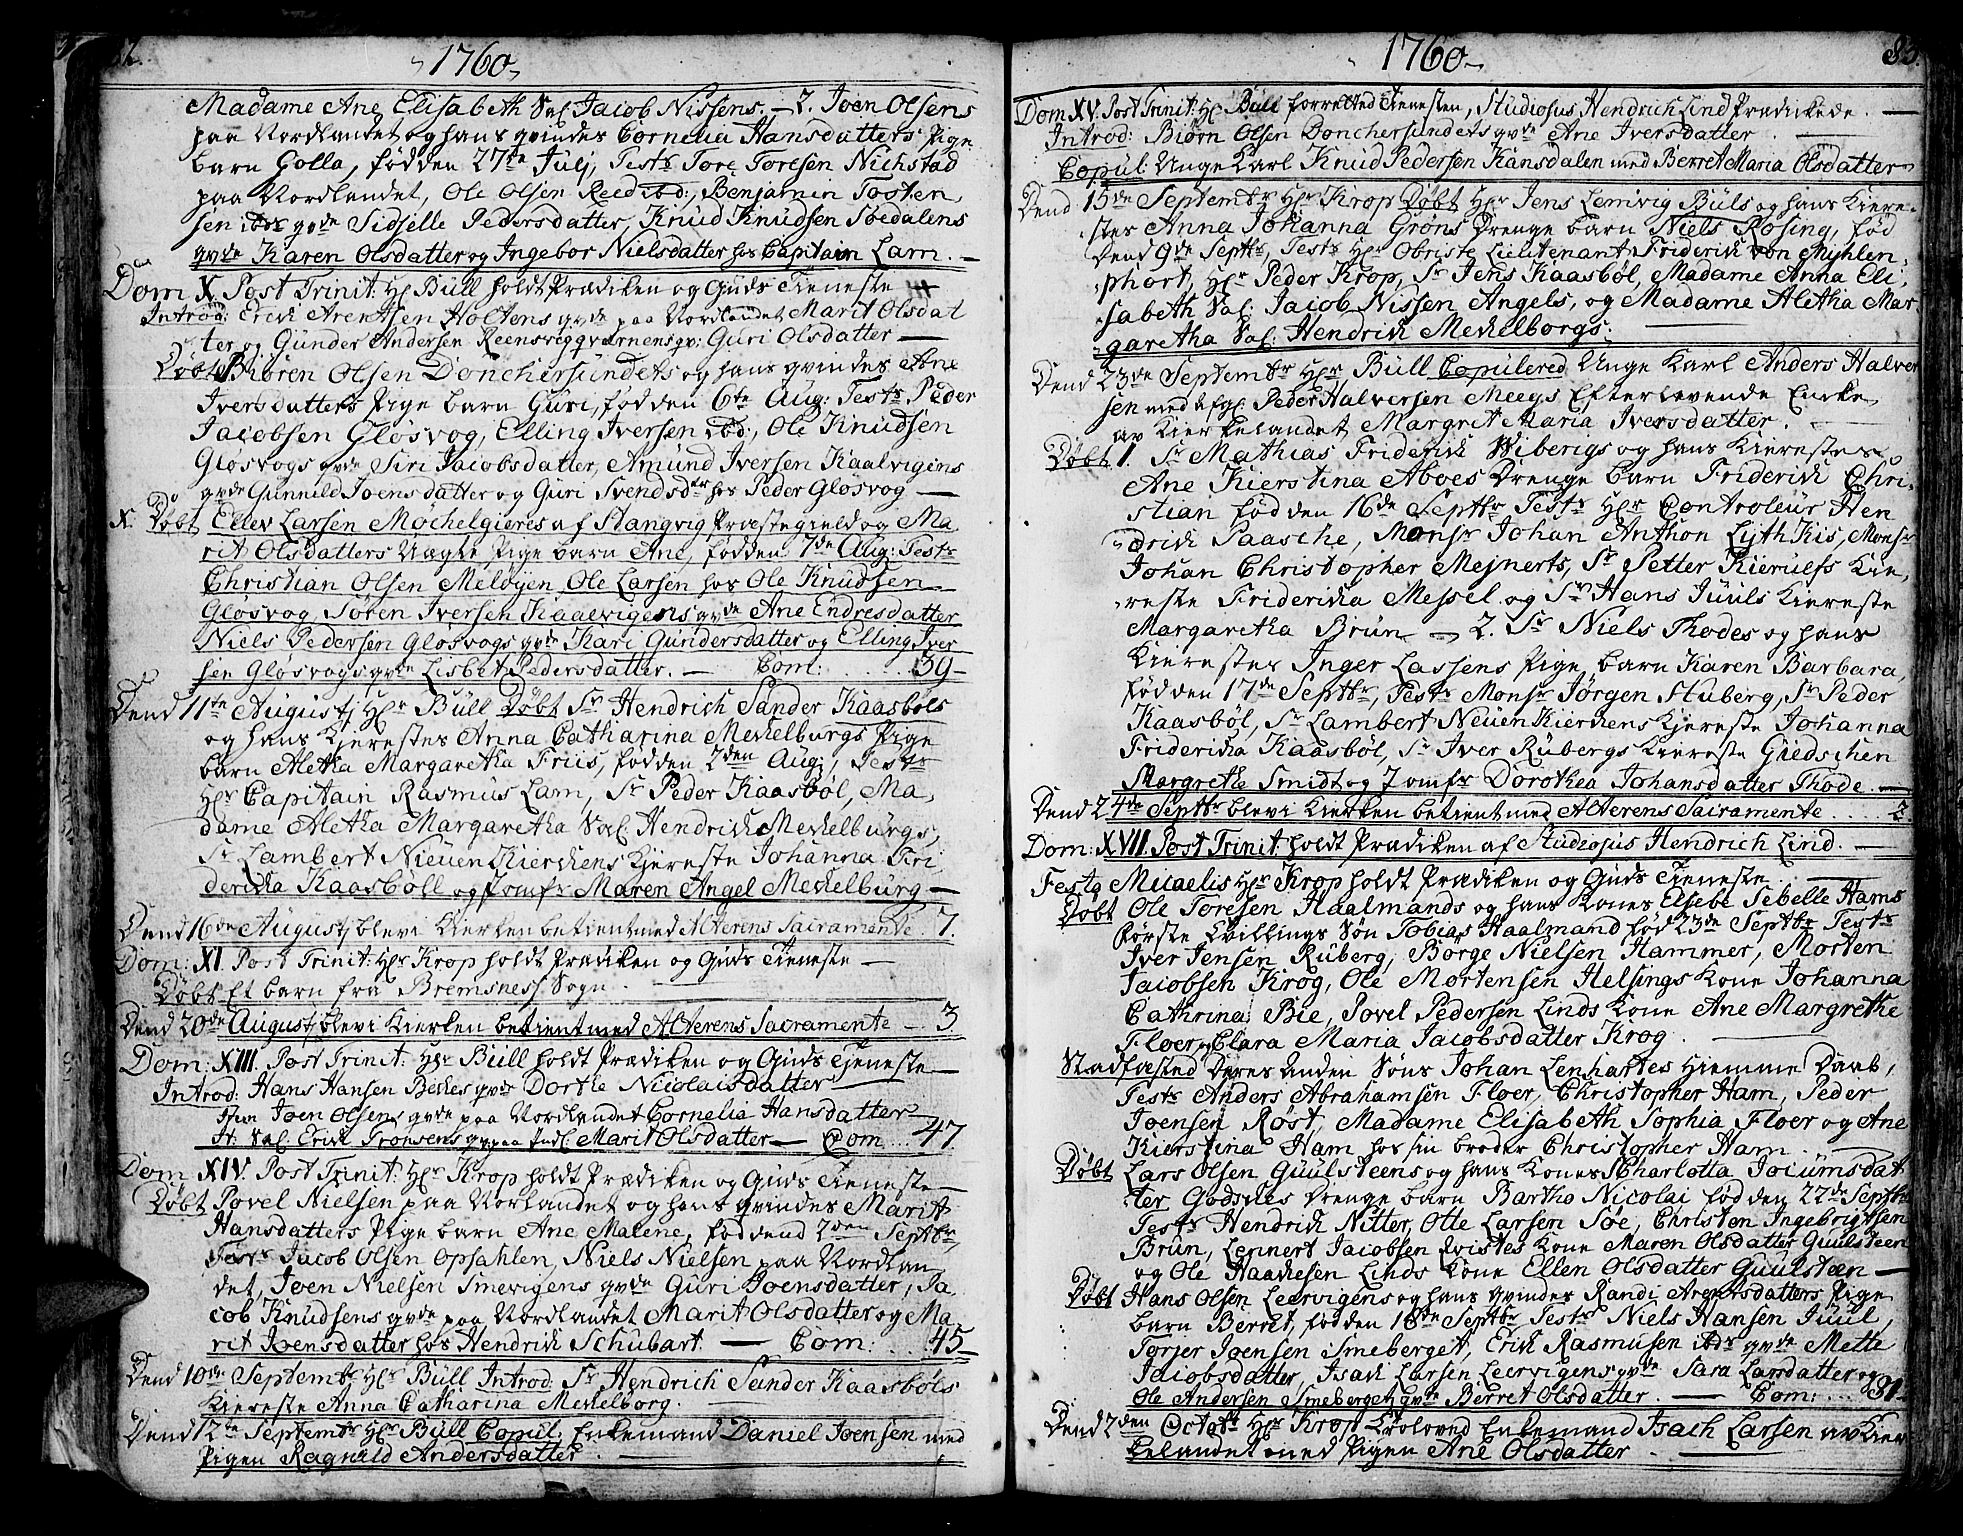 1760
Madame Ane Elisabeth Sal. Jacob Nissens, — 2. Joen Olsens
paa Nordlandet og hans qvindes Cornelia Hansdatters Pige
barn Golla, fød den 27de Julj, Test: Tore Toresen Nichstad
paa Nordlandet, Ole Olsen Reed ibd:, Benjamin Tosten,
sen ibds qvde Sidselle Pedersdatter, Knud Knudsen Søedalens
qvde Karen Olsdatter og Ingebor Nielsdatter hos Capitain Lam. —
Dom X. Post Trinit: Hr Büll holdt Prædiken og Guds Tieneste
Introd: Erich Arentsen Holtens qvde paa Nordlandet Marit Olsdat
ter og Gunder Andersen Reensvegqvarnens qv: Guri Olsdatter —
Døbt Biøren Olsen Donchersundets og hans qvindes Ane
Iversdatters Pige barn Guri, fød den 6te Aug: Test: Peder
Jacobsen Gløsvog, Elling Iversen ibd:, Ole Knudsen
Gløsvogs qvde Siri Jacobsdatter, Amund Iversen Kaalvigens
qvde Gunnild Joensdatter og Guri Svendsdtr hos Peder Gløsvog —
X. Døbt Ellev Larsen Möchelgieres af Stangvig Præstegield og Ma
rit Olsdatters Uægte Pige barn Ane, fød den 7de Aug: Test:
Christian Olsen Meløyen, Ole Larsen hos Ole Knudsen
Gløsvog, Søren Iversen Kaalvigens qvde Ane Endresdatter
Niels Pedersen Gløsvogs qvde Kari Gundersdatter og Elling Iver
sen Gløsvogs qvde Lisbet Pedersdatter. — Com: 59 —
Dend 11te Augustj Hr Büll Døbt Sr Hendrich Sander Kaasbøls
og hans Kierestes Anna Catharina Meckelburgs Pige
barn Aletha Margaretha Friis, fød den 2den Aug:, Test:
Hr Capitain Rasmus Lam, Sr Peder Kaasbøl, Ma,
dame Aletha Margaretha Sal. Hendrich Meckelburgs,
Sr Lambert Nieuen Kierchens Kiereste Johanna Fri
dericha Kaasbøll og Jomfr Maren Angel Meckelburg —
Dend 16de Augustj blev Kierken betient med Alterens Sacramente . 7.
Dom: XI. Post Trinit: Hr Krop holdt Prædiken og Guds Tieneste —
Døbt Et barn fra Bremsness Sogn.
Dend 20de Augustj blev Kierken betient med Alterens Sacramente — 3
Dom: XIII. Post Trinit: Hr Büll holdt Prædiken og Guds Tjeneste —
Introd: Hans Hansen Beches qvde Dorthe Nicolaisdatter —
Joen Olsens qvde paa Nordlandet Cornelia Hansdatter
It: Sal. Erich Tronsens qv paa Indl. Marit Olsdatter — Com... 47
Dom XIV. Post Trinit: Hr Krop holdt Prædiken og Guds Tieneste —
Døbt Povel Nielsen paa Norlandet og hans qvindes Marit
Hansdatters Pige barn Ane Malene, fød dend 2den Septbr,
Test: Jacob Olsen Opsahlen, Niels Nielsen paa Nordlan
det, Joen Nielsen Smevigens qvde Guri Joensdatter, Ja
cob Knudsens qvde paa Nordlandet Marit Olsdatter og Ma
rit Joensdatter hos Hendrich Schubart — Com: . 45 —
Dend 10de Septembr Hr Büll Introd: Sr Hendrich Sander Kaasbøls
Kiereste Anna Catharina Meckelborg.
Dend 12te Septembr Hr Büll Copul: Enkemand Daniel Joensen med
Pigen Ragnild Andersdatter. —
1760
83.
Dom XV. Post Trinit: Hr Büll forretted Tienesten, Studiosus Hendrich Lind Prædickede. —
Introd: Biørn Olsen Donchersundets qvde Ane Iversdatter —
Copul: Unge Karl Knud Pedersen Hansdalen med Berret Maria Olsdatter —
Dend 15de Septembr Hr Krop Døbt Hr Jens Lemvig Büls og hans Kiere,
stes Anna Johanna Gröns Drenge barn Niels Rosing, fød
Dend 9de Septbr, Test: Hr Obriste Lieutenant Friderich von Mühlen,
phort, Hr Peder Krop, Sr Jens Kaasbøl, Madame Anna Eli,
sabeth Sal. Jacob Nissen Angels, og Madame Aletha Mar
garetha Sal. Hendrich Meckelborgs. —
Dend 23de Septembr Hr Büll Copulered Unge Karl Anders Halver
sen med Afgl. Peder Halversen Meeys Efterlevende Enke
av Kierkelandet Margret Maria Iversdatter.
Døbt 1. Sr Mathias Friderich Wibergs og hans Kierestes
Ane Kierstina Aboes Drenge barn Friderich Chri,
stian fød den 16de Septbr Test: Hr Controleur Hen
drich Paasche, Monsr Johan Anthon Lythkis, Monsr
Johan Christopher Mejnerts, Sr Petter Kierulfs Kie,
reste Fridericha Messel og Sr Hans Juuls Kiereste
Margaretha Brun — 2. Sr Niels Thodes og hans
Kierestes Inger Lassens Pige barn Karen Barbara,
fød den 17de Septbr, Test: Monsr Jørgen Stuberg, Sr Peder
Kaasbøl, Sr Lambert Neuen Kierchens Kjereste Johanna
Fridericha Kaasbøl, Sr Iver Rübergs Kiereste Giedschen
Margrethe Smidt og Jomfr Dorothea Johansdatter Thode. —
Dend 24de Septbr blev Kierken betient med Alterens Sacramente . . . . 2.
Dom: XVII. Post Trinit: holdt Prædiken af Studiosus Hendrich Lind. —
Festo Micaelis Hr Krop holdt Prædiken og Guds Tieneste.
Døbt Ole Toresen Haalmands og hans Kones Elsebe Sebelle Hams
første Tvillings Søn Tobias Haalmand fød 23de Septbr Test:
Iver Jensen Rüberg, Børge Nielsen Hammer, Morten
Jacobsen Krog, Ole Mortensen Helsings Kone Johanna
Cathrina Bie, Povel Pedersen Linds Kone Ane Margrethe
Floer og Clara Maria Jacobsdatter Krog. —
Stadfæsted Deres Anden Søns Johan Lenhartes Hiemme Daab,
Test: Anders Abrahamsen Floer, Christopher Ham, Peder
Joensen Røst, Madame Elisabeth Sophia Floer og Ane
Kierstina Ham hos sin broder Christopher Ham. —
Døbt Lars Olsen Guulsteens og hans Kones Charlotta Jocumsdat
ter Godskes Drenge barn Bartho Nicolai fød den 22de Septbr
Test: Hendrich Nitter, Otte Larsen Søe, Christen Ingebrigtsen
Brun, Lennert Jacobsen Qvistes Kone Maren Olsdatter Guulsteen
og Ole Haachesen Linds Kone Ellen Olsdatter Guulsteen —
Døbt Hans Olsen Leervigens og hans qvindes Randi Arentsdatters Pige
barn Berret, fød den 18de Septbr Test: Niels Hansen Juul,
Torjer Joensen Smeberget, Erich Rasmusen ibds qvde Mette
Jacobsdatter, Isach Larsen Leervigens qvde Sara Larsdatter og
Ole Andersen Smeberget qvde Berret Olsdatter. — Com: . 81.
Dend 2den Octobr Hr Krop Troloved Enkemand Isach Larsen av Kier
kelandet med Pigen Ane Olsdatter —